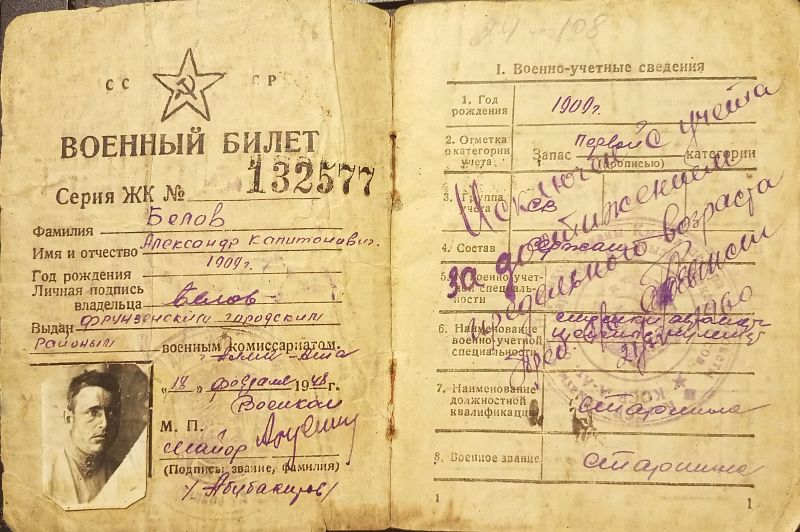 СС СР
ВОЕННЫЙ БИЛЕТ
Серия ЖК № 132577
Фамилия Белов
Имя и отчество Александр Капитонович.
Год рождения 1909 г.
Личная подпись
владельца Белов
Выдан Фрунзенским городским
районым военным комиссариатом.
г. Алма-Ата
„18" февраля 1948 г.
Военком
М. П.
майор
(Подпись, звание, фамилия)
/Абубакиров/
24-108
I. Военно-учетные сведения
1. Год
рождения 1909 г.
2. Отметка
о категории
учета Запас Первой категории
(прописью)
3. Группа
учета СВ
4. Состав Сержант
5. Военно-учет-
ной специаль-
ности
6. Наименование
военно-учетной
специальности
7. Наименование
должностной
квалификации старшина
8. Военное звание старшина
Исключен с учета
за достижением
предельного возраста
1
1